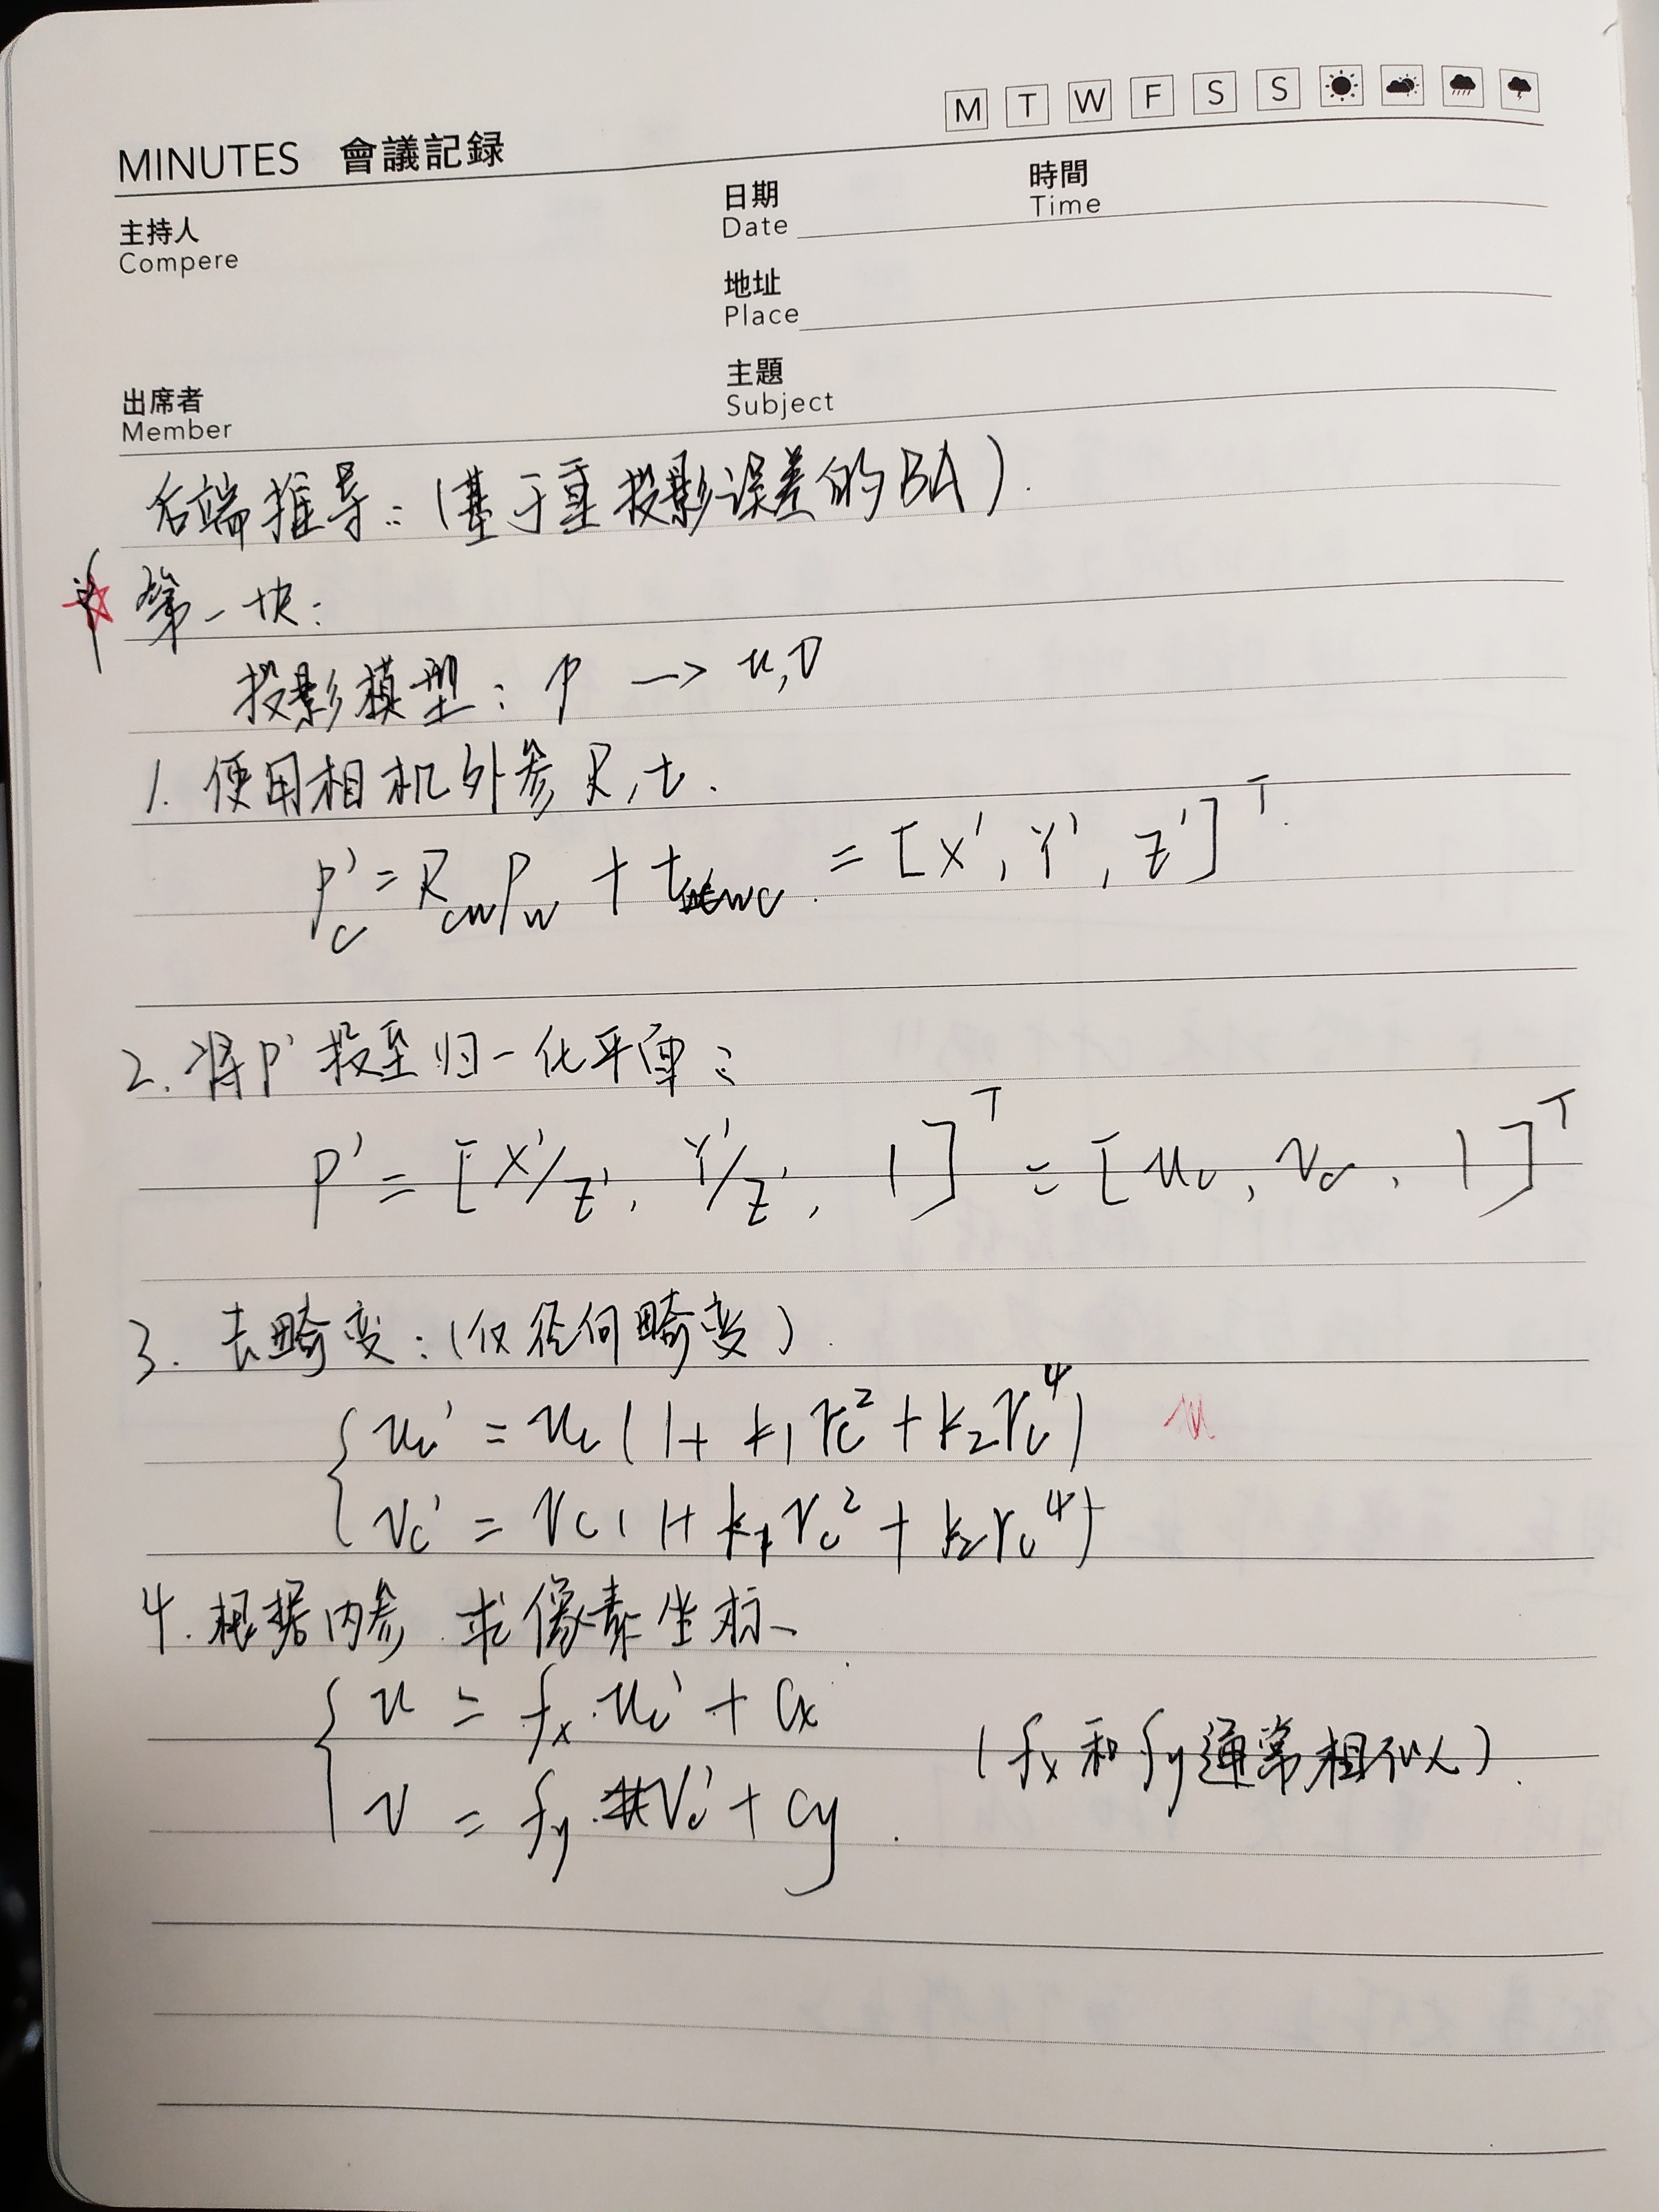 MINUTES 會議記録
M T W F S S
主持人 Compere
日期 Date
時間 Time
地址 Place
出席者 Member
主題 Subject
后端推导：(基于重投影误差的BA).
第一步：
投影模型：P → u,v
1. 使用相机外参 R,t.
P'c = Rcw Pw + tcwc = [X', Y', Z']T.
2. 将P'投至归一化平面：
P' = [X'/Z', Y'/Z', 1]T = [uc, vc, 1]T
3. 去畸变：(仅径向畸变).
{ uc' = uc (1 + k1 rc² + k2 rc⁴)
{ vc' = vc (1 + k1 rc² + k2 rc⁴)
4. 根据内参 求像素坐标
{ u = fx · uc' + cx
{ v = fy · vc' + cy
(fx 和 fy 通常相似).